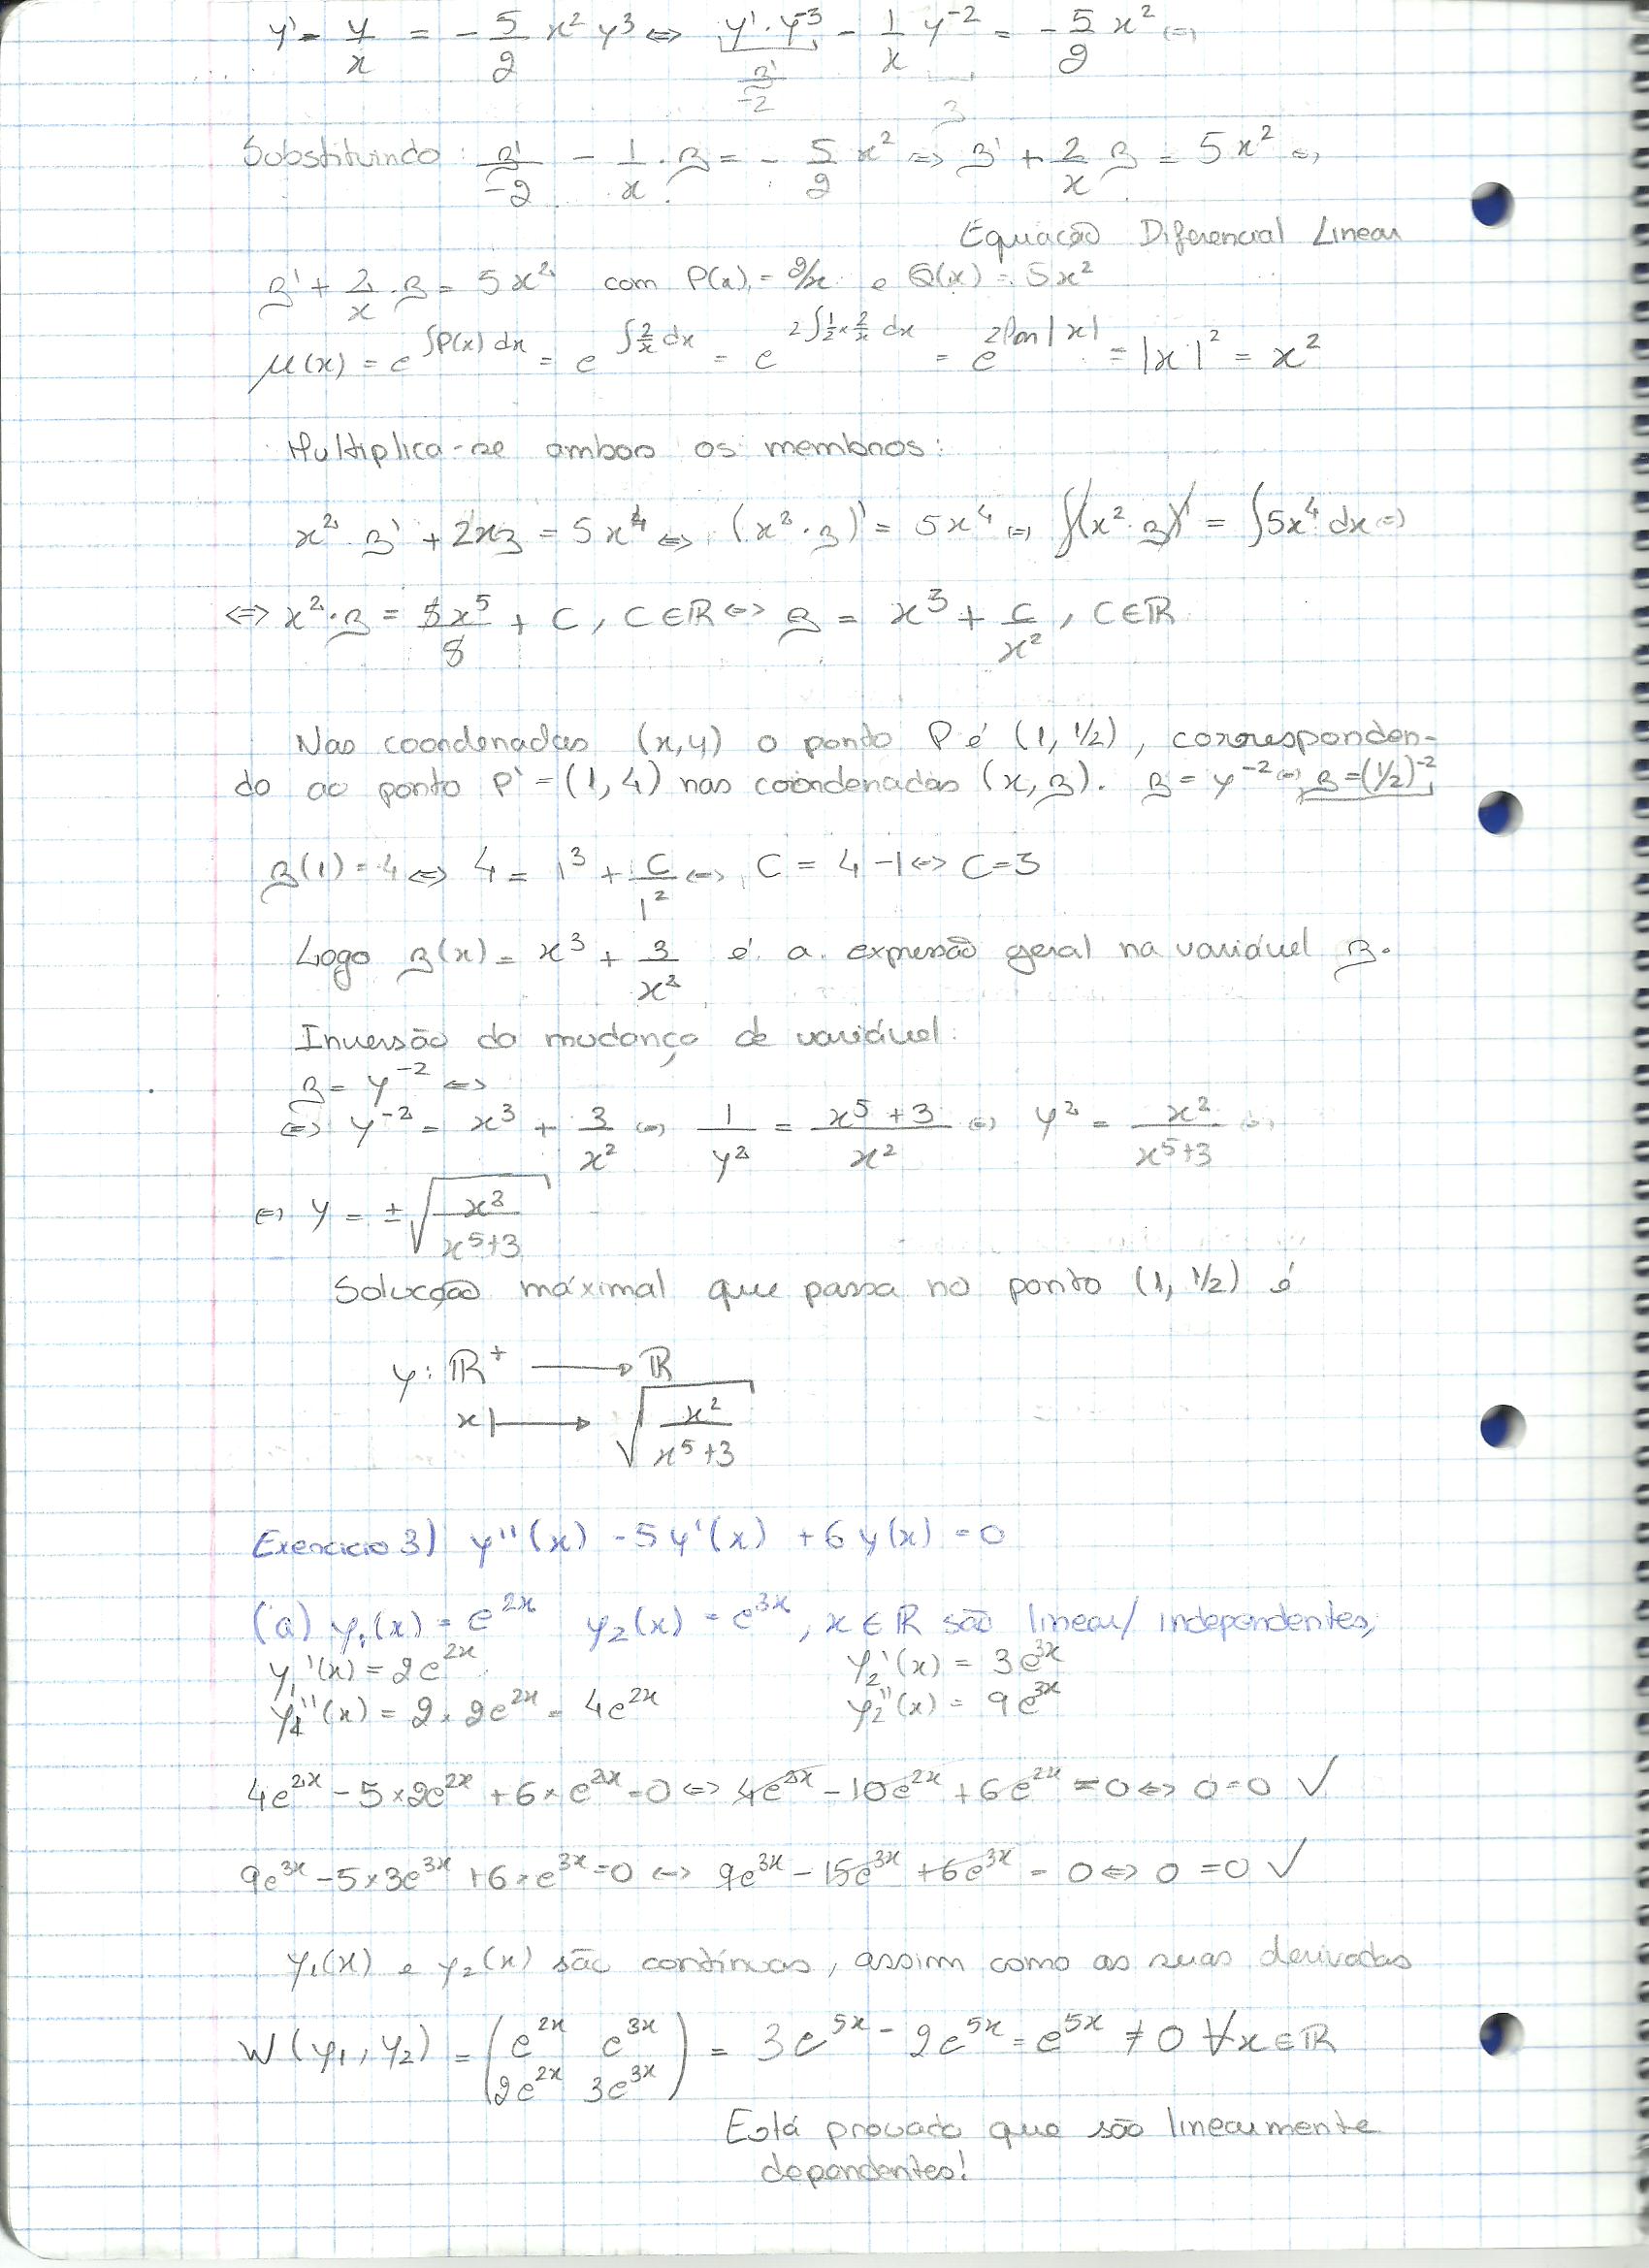 y' - y/x = - 5/2 x² y³ ⇔ y'·y⁻³ - 1/x y⁻² = - 5/2 x² ⇔
z'/-2 z
Substituindo: z'/-2 - 1/x · z = - 5/2 x² ⇔ z' + 2/x z = 5x² ⇔
Equação Diferencial Linear
z' + 2/x · z = 5x² com P(x) = 2/x e Q(x) = 5x²
μ(x) = e^∫P(x) dx = e^∫2/x dx = e^2∫1/2×2/x dx = e^2ln|x| = |x|² = x²
Multiplica-se ambos os membros:
x²·z' + 2xz = 5x⁴ ⇔ (x²·z)' = 5x⁴ ⇔ ∫(x²·z)' = ∫5x⁴ dx ⇔
⇔ x²·z = 5x⁵/5 + C, C∈ℝ ⇔ z = x³ + C/x², C∈ℝ
Nas coordenadas (x,y) o ponto P é (1, 1/2), corresponden-
do ao ponto P' = (1, 4) nas coordenadas (x, z). z = y⁻² ⇔ z = (1/2)⁻²
z(1) = 4 ⇔ 4 = 1³ + C/1² ⇔ C = 4 - 1 ⇔ C = 3
Logo z(x) = x³ + 3/x² é a expressão geral na variável z.
Inversão da mudança de variável:
z = y⁻² ⇔
⇔ y⁻² = x³ + 3/x² ⇔ 1/y² = x⁵+3/x² ⇔ y² = x²/x⁵+3 ⇔
⇔ y = ±√x²/x⁵+3
Solução máximal que passa no ponto (1, 1/2) é
y: ℝ⁺ → ℝ
x ↦ √x²/x⁵+3
Exercicio 3) y''(x) - 5y'(x) + 6y(x) = 0
(a) y₁(x) = e²ˣ y₂(x) = e³ˣ, x∈ℝ são linear/ independentes,
y₁'(x) = 2e²ˣ y₂'(x) = 3e³ˣ
y₁''(x) = 2×2e²ˣ = 4e²ˣ y₂''(x) = 9e³ˣ
4e²ˣ - 5×2e²ˣ + 6×e²ˣ = 0 ⇔ 4e²ˣ - 10e²ˣ + 6e²ˣ = 0 ⇔ 0 = 0 ✓
9e³ˣ - 5×3e³ˣ + 6×e³ˣ = 0 ⇔ 9e³ˣ - 15e³ˣ + 6e³ˣ = 0 ⇔ 0 = 0 ✓
y₁(x) e y₂(x) são contínuas, assim como as suas derivadas
W(y₁, y₂) = (e²ˣ e³ˣ 2e²ˣ 3e³ˣ) = 3e⁵ˣ - 2e⁵ˣ = e⁵ˣ ≠ 0 ∀x∈ℝ
Está provado que são linearmente
dependentes!